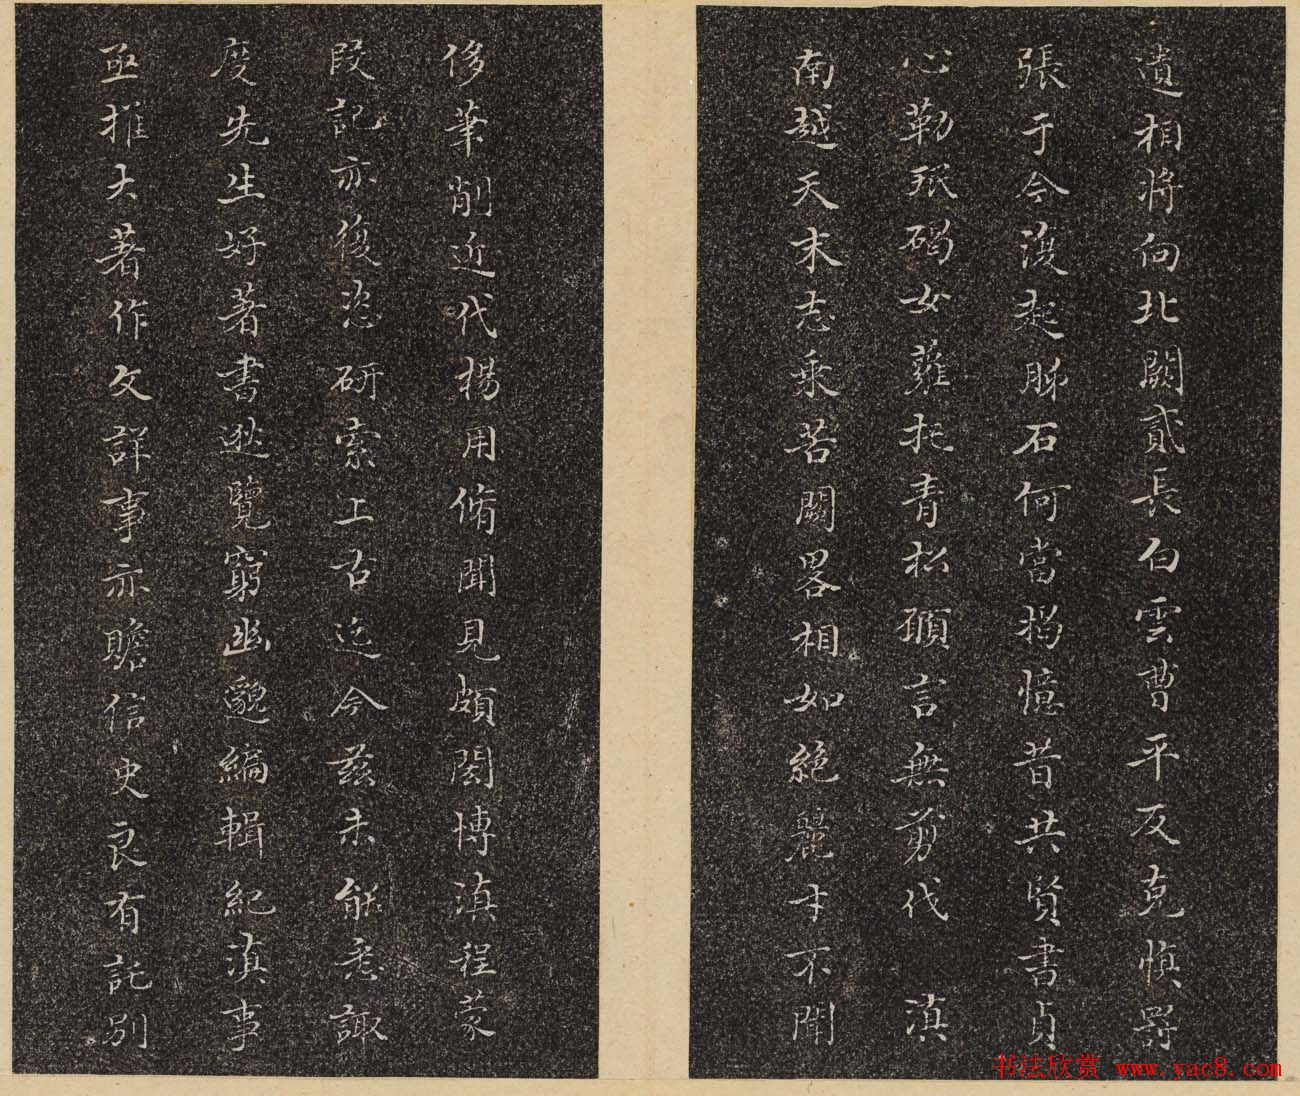 遺相將向北闕貳長白雲曹平反克慎罰
張于今復起肺石何當揭憶昔共賢書貞
心勒珉碣女蘿托青松願言無剪伐　滇
南越天末志乘苦闕畧相如絕麗才不聞
侈筆削近代楊用脩聞見頗閎博滇程蒙
段記亦復恣研索上古迄今茲未能悉諏
度先生好著書遊覽窮幽邈編輯紀滇事
亟推大著作文詳事亦贍信史良有託別
书法欣赏 www.yac8.com